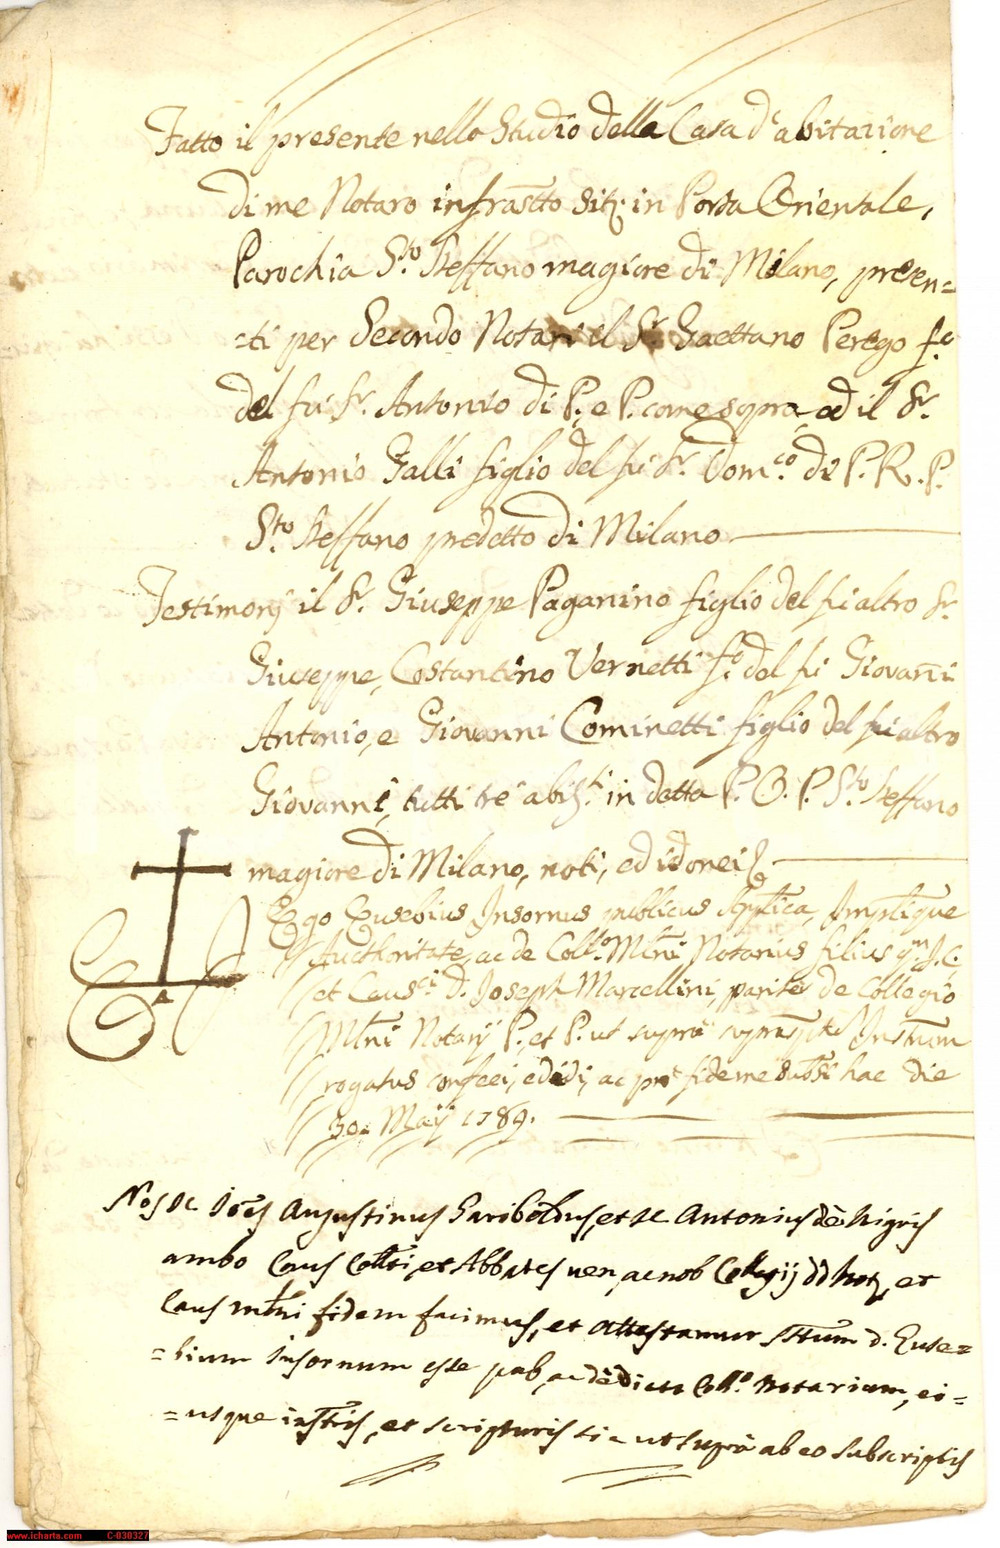 Fatto il presente nello Studio della Casa d'abitazione
di me Notaro infrastto sitz. in Porta Orientale,
Parochia S.to Steffano magiore di Milano, presen=
=ti per Secondo Notari il Sr. Gaettano Perego f.o
del fu Sr. Antonio di P. e P. come sopra, ed il Sr.
Antonio Galli figlio del fu Sr. Dom.co di P. R. P.
S.to Steffano predetto di Milano
Testimonj il Sr. Giuseppe Paganino figlio del fu altro Sr.
Giuseppe, Costantino Vernetti f.o del fu Giovañi
Antonio, e Giovanni Cominetti figlio del fu altro
Giovanni, tutti tre abit.ti in detta P. O. P. S.to Steffano
magiore di Milano, noti, ed idonei
Ego Eusebius Insornus publicus Aplica, Implique
Aucthoritate, ac de Coll.o Mlni Notarius filius qm. J. C.
et Caus.ci D. Joseph Marcellini, pariter de Collegio
Mlni Notarij P. et P. ut supra suprascptũ Instrum
rogatus confeci, edidi, ac pro fide me subsi hac die
30. Maij 1789.
Nos Jc Joẽs Augustinus Gariboldus, et Jc Antonius de Nigris
ambo Caus Colltti, et Abbates ven, ac nob Collegij DD Not, et
Caus Mlni fidem facimus, et attestamur sttum D. Euse=
=bium Insornum esse pub, ac de dicto Coll.o Notarium, ei=
=usque instris, et scripturis sic ut supra ab eo subscriptis
www.icharta.com C-030327